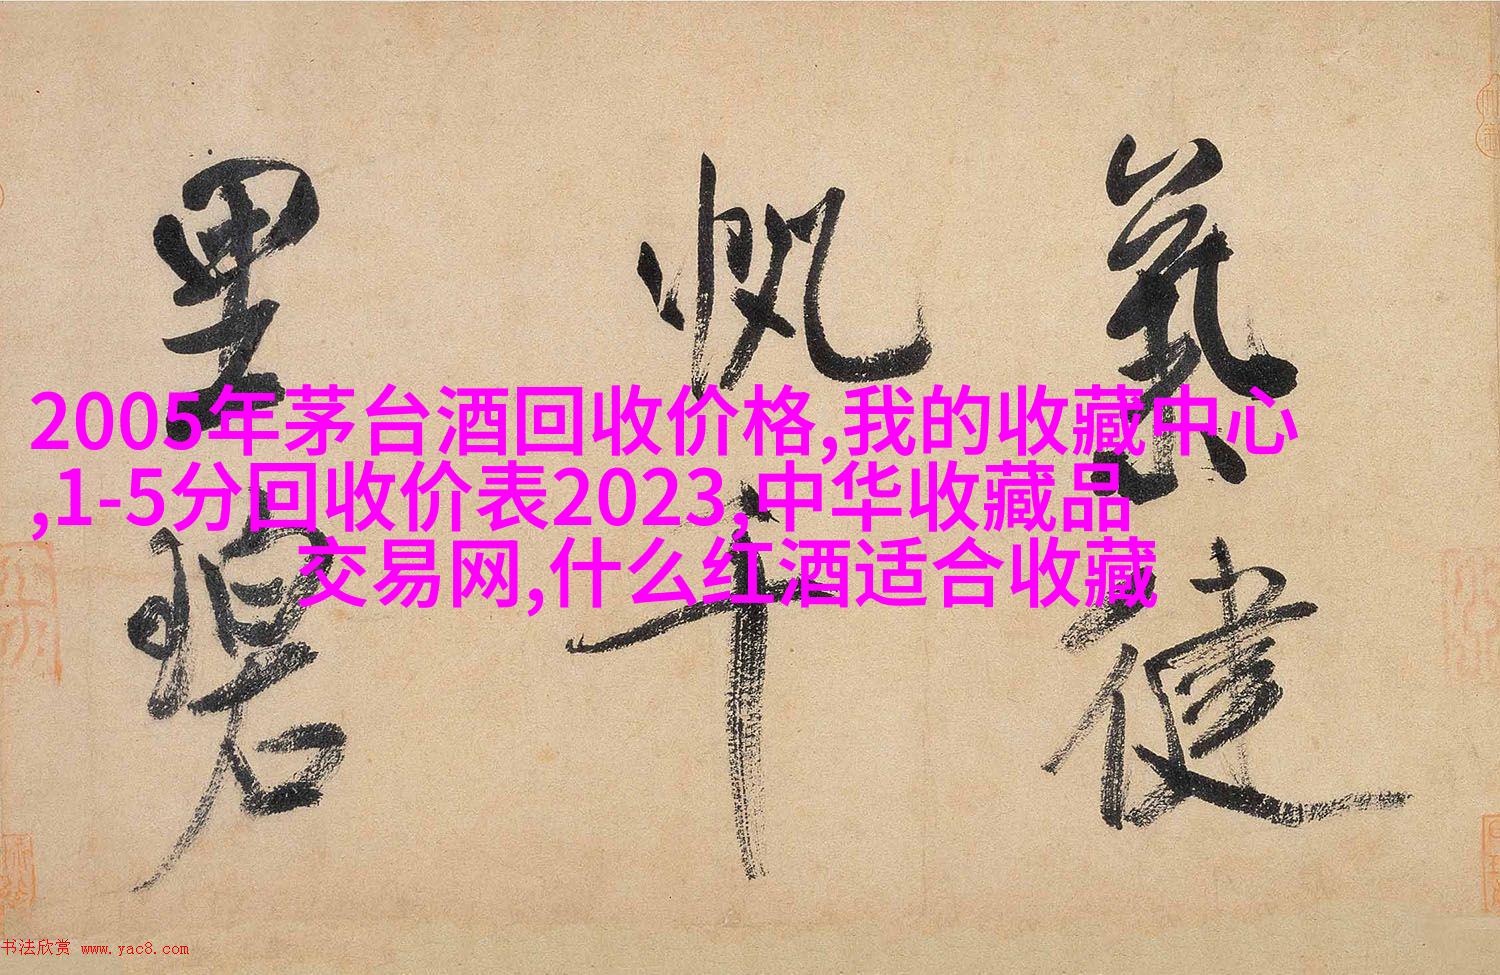 氣健
帆千
里碧
2005年茅台酒回收价格,我的收藏中心
,1-5分回收价表2023,中华收藏品
交易网,什么红酒适合收藏
书法欣赏 www.yac8.com